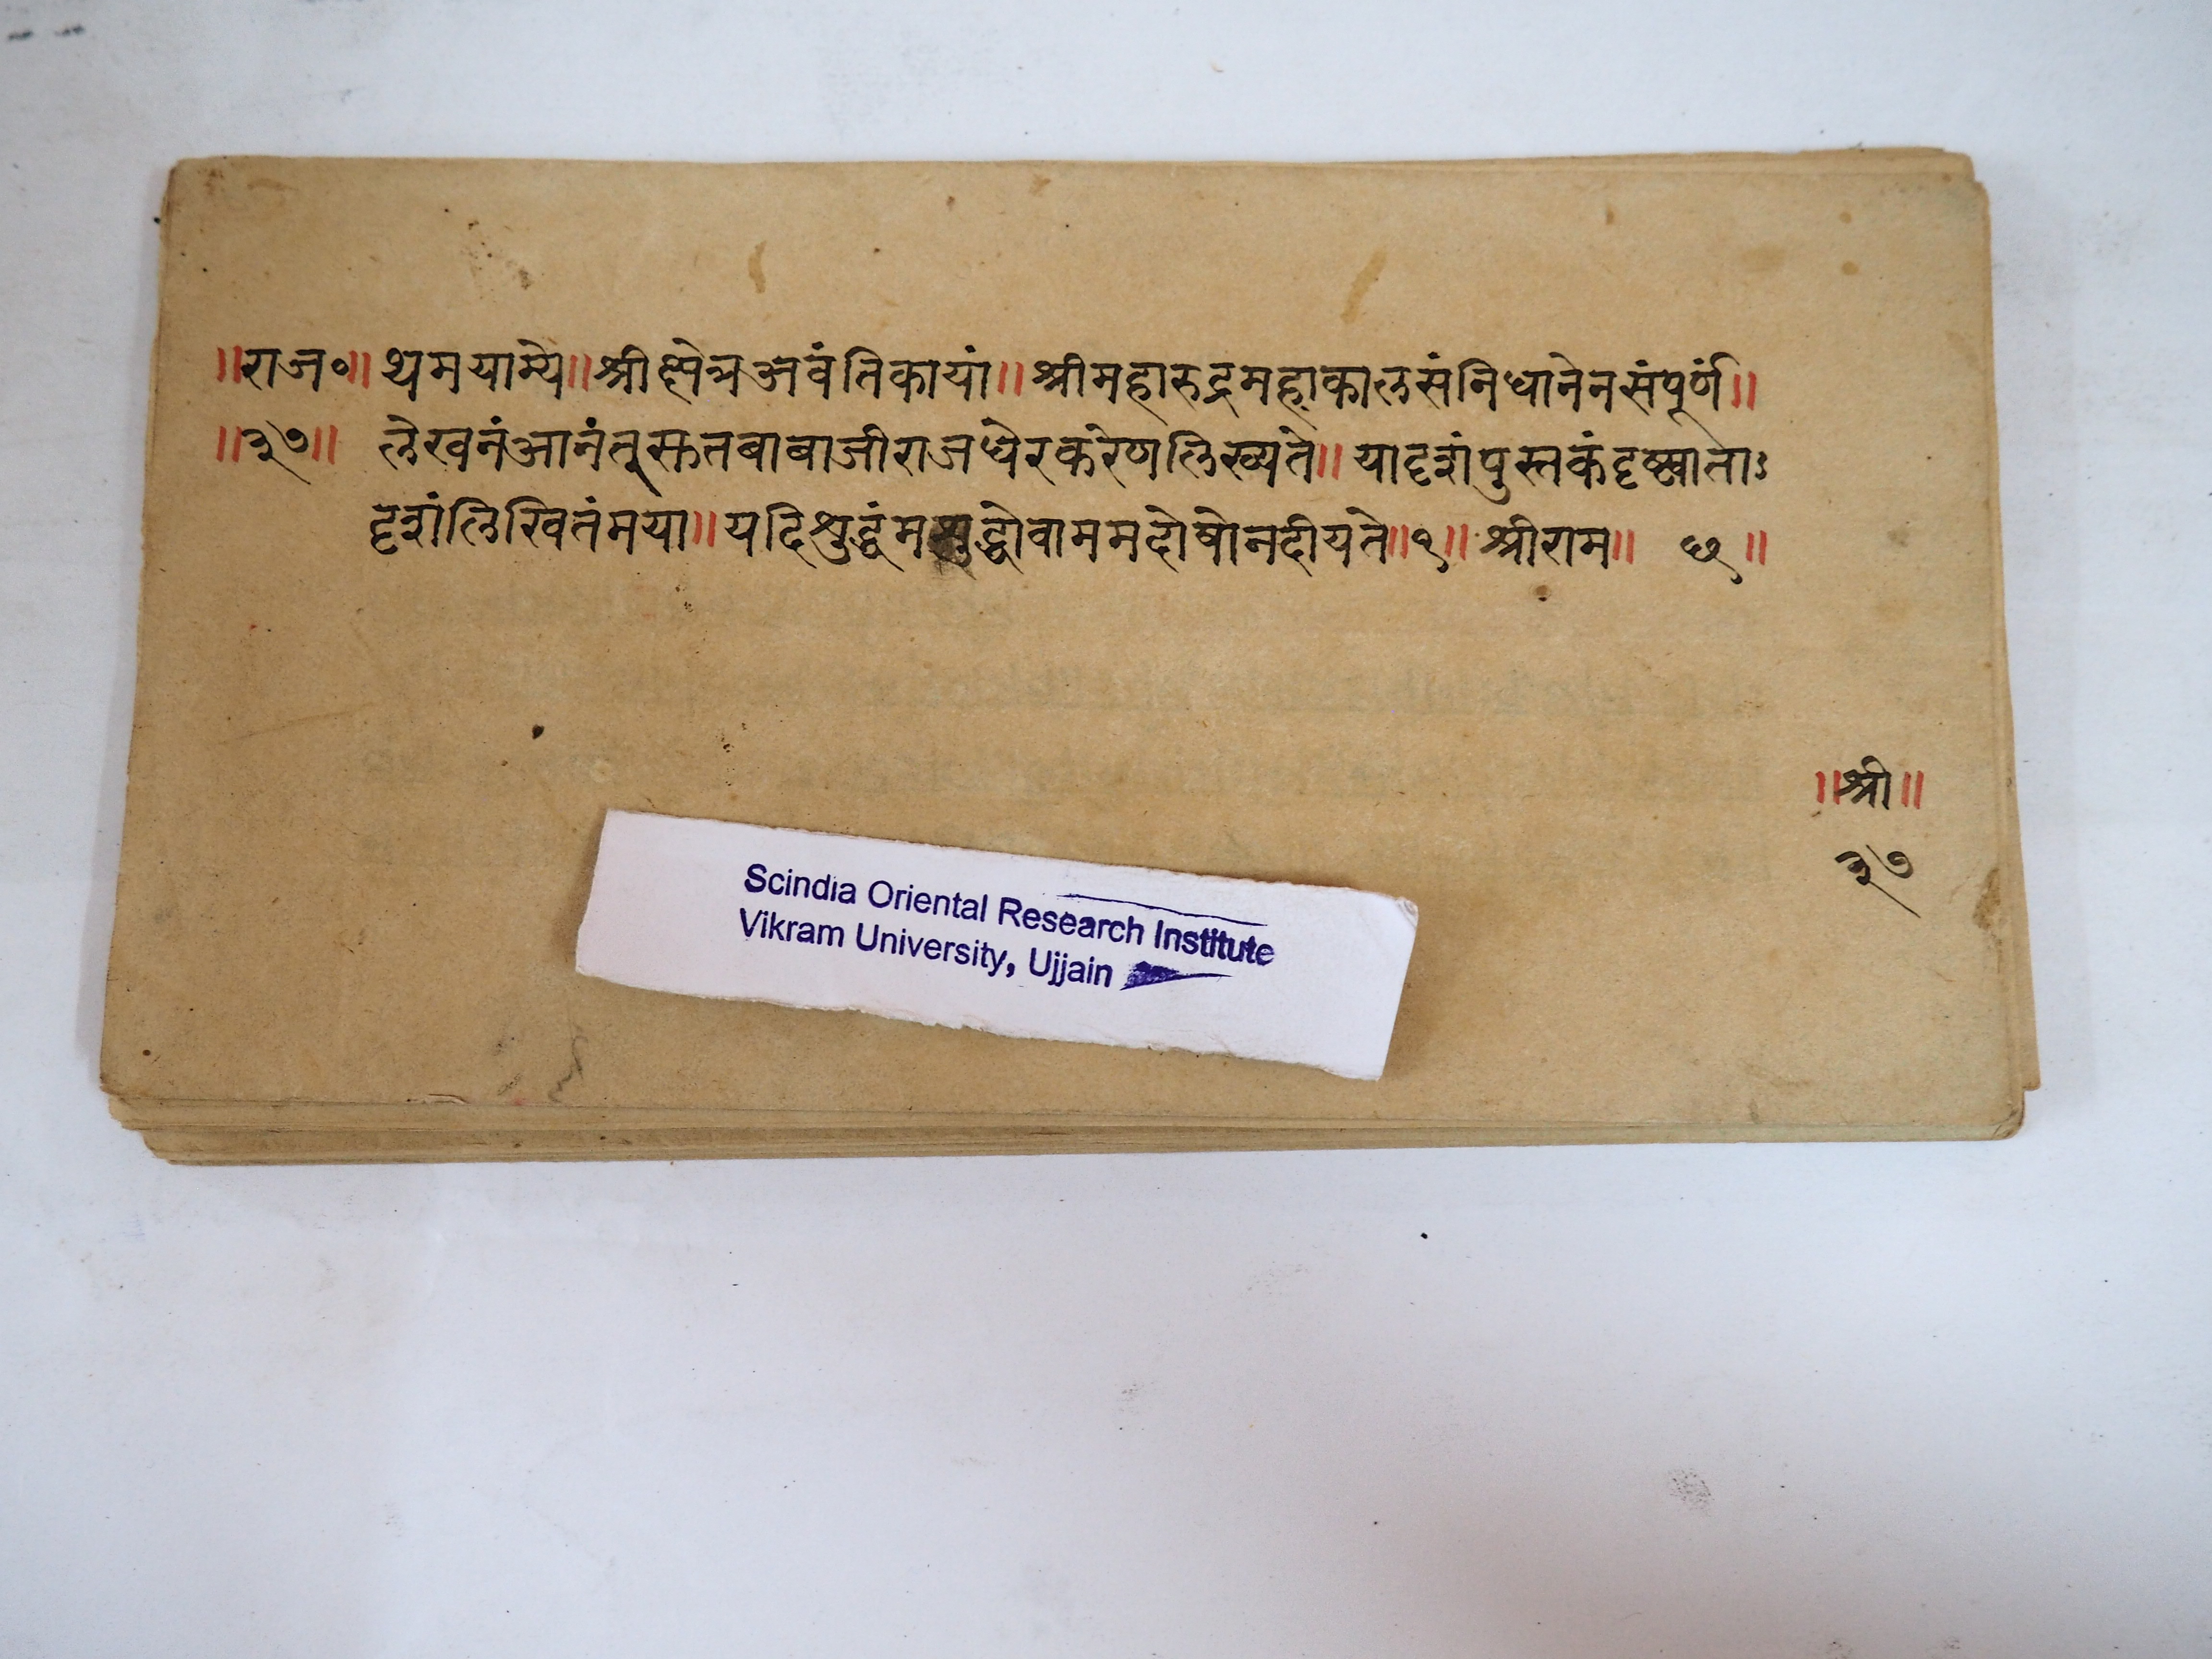 ॥राज॰॥ थमयाम्ये॥श्रीक्षेत्रअवंतिकायां॥श्रीमहारुद्रमहाकालसंनिधानेनसंपूर्णं॥
॥३७॥ लेखनंआनंतसुतबाबाजीराजघेरकरेणलिख्यते॥यादृशंपुस्तकंदृष्ट्वाताऽ
दृशंलिखितंमया॥यदिशुद्धंमशुद्धोवाममदोषोनदीयते॥१॥श्रीराम॥ छ॥
॥श्री॥
३७
Scindia Oriental Research Institute
Vikram University, Ujjain